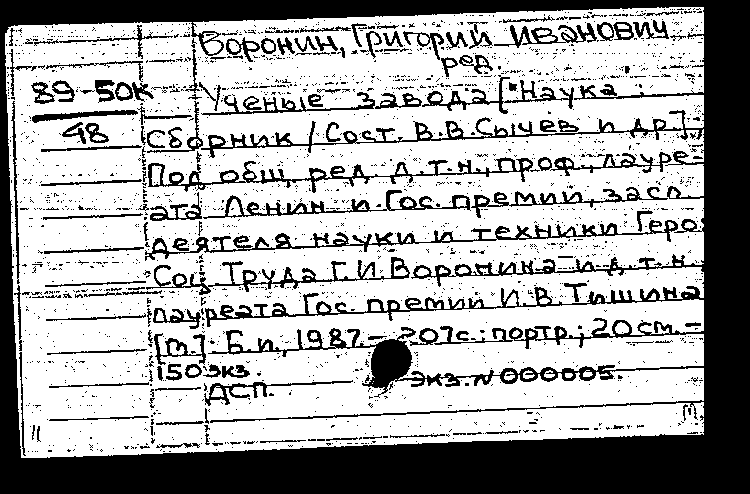 Воронин, Григорий Иванович
ред.
89-50к
98
Ученые завода ["Наука":
Сборник / Сост. В.В.Сычев и др.];
Под общ. ред. д.т.н., проф., лауре-
ата Ленин. и Гос. премий, засл.
деятеля науки и техники Героя
Соц. Труда Г.И.Воронина и д.т.н.,
лауреата Гос. премии И.В.Тишина
[м.]: Б.и., 1987.- 207с.: портр.; 20 см.-
150 экз.
ДСП.
экз. N 000005.
11
М